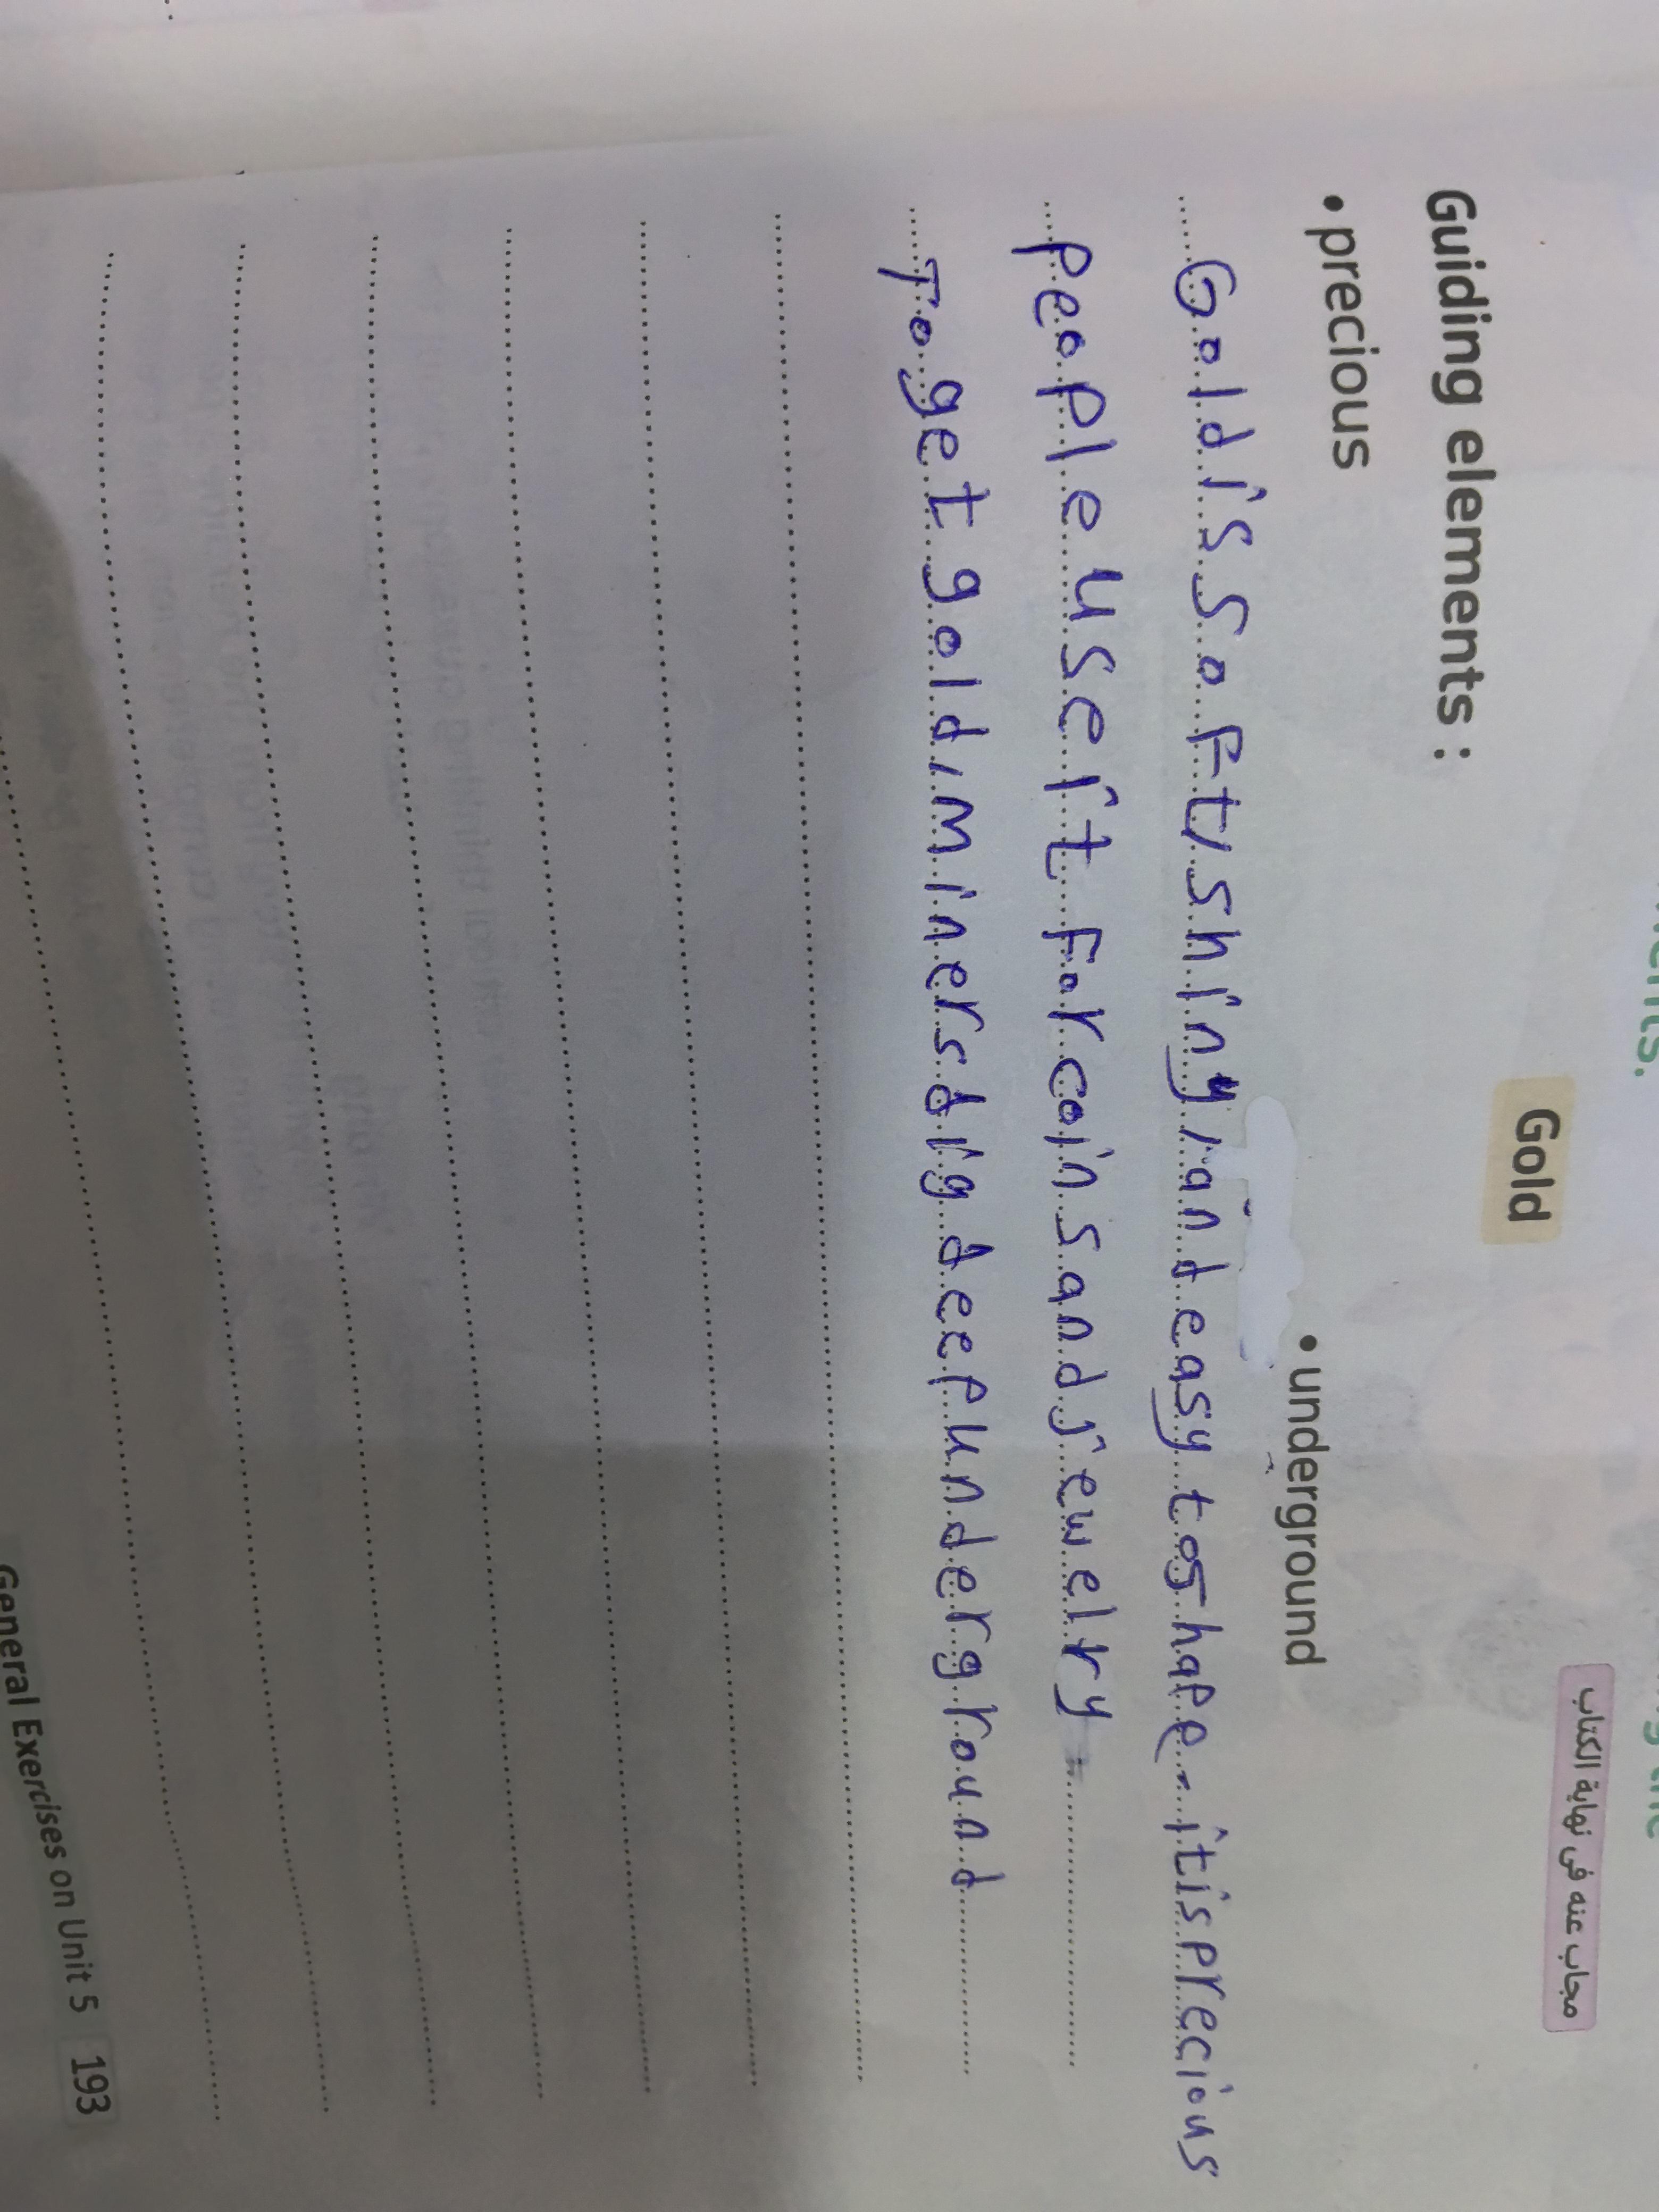 Gold
مجاب عنه فى نهاية الكتاب
Guiding elements :
• precious
• underground
Gold is soft, shiny, and easy to shape - it is precious
people use it for coins and jewelry
To get gold, miners dig deep underground
General Exercises on Unit 5 193